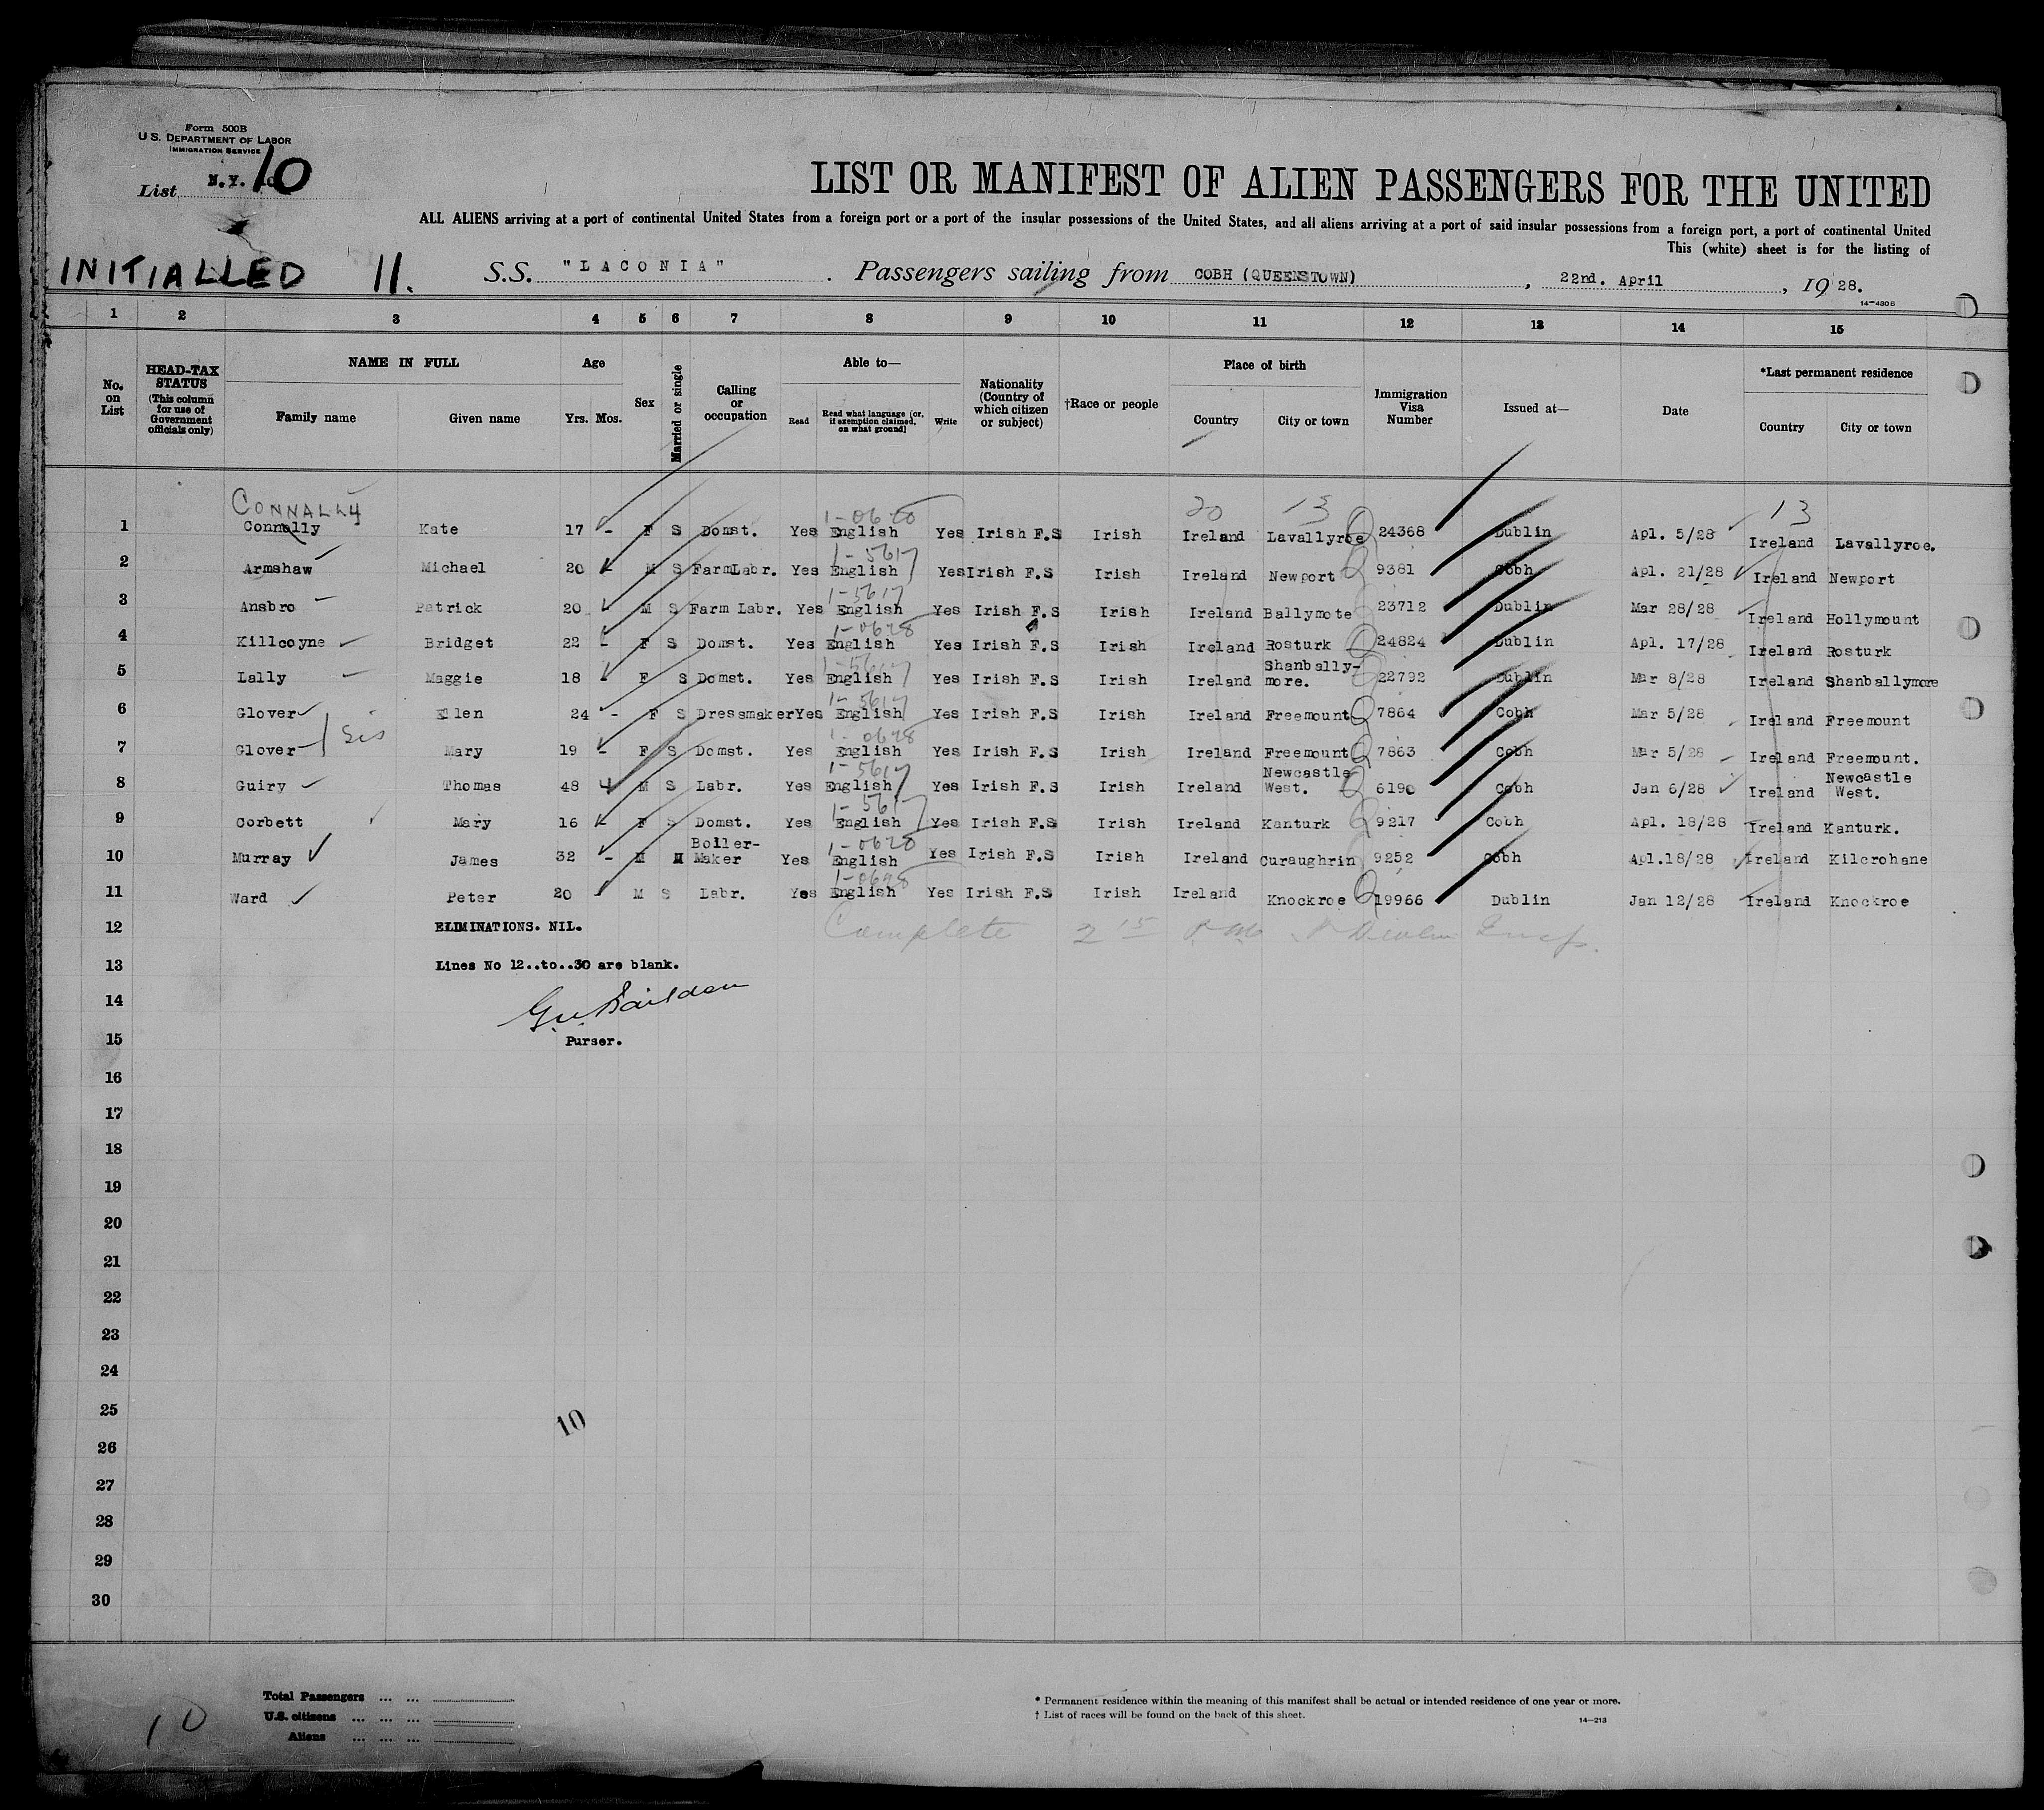 Form 500B
U.S. DEPARTMENT OF LABOR
IMMIGRATION SERVICE
List N.Y. 10
LIST OR MANIFEST OF ALIEN PASSENGERS FOR THE UNITED
ALL ALIENS arriving at a port of continental United States from a foreign port or a port of the insular possessions of the United States, and all aliens arriving at a port of said insular possessions from a foreign port, a port of continental United
This (white) sheet is for the listing of
INITIALLED 11. S.S. "LACONIA" . Passengers sailing from COBH (QUEENSTOWN) , 22nd. April , 1928.
14—430B
1 2 3 4 5 6 7 8 9 10 11 12 13 14 15
No. on List
HEAD-TAX STATUS (This column for use of Government officials only)
NAME IN FULL
Family name Given name
Age
Yrs. Mos.
Sex
Married or single
Calling or occupation
Able to—
Read Read what language [or, if exemption claimed, on what ground] Write
Nationality (Country of which citizen or subject)
†Race or people
Place of birth
Country City or town
Immigration Visa Number
Issued at—
Date
*Last permanent residence
Country City or town
CONNALLY 1-0620 20 13 13
1 Connolly Kate 17 - F S Domst. Yes English Yes Irish F.S Irish Ireland Lavallyroe 24368 Dublin Apl. 5/28 Ireland Lavallyroe.
1-5617
2 Armshaw Michael 20 - M S FarmLabr. Yes English Yes Irish F.S Irish Ireland Newport 9381 Cobh Apl. 21/28 Ireland Newport
1-5617
3 Ansbro Patrick 20 M S Farm Labr. Yes English Yes Irish F.S Irish Ireland Ballymote 23712 Dublin Mar 28/28 Ireland Hollymount
1-0628
4 Killcoyne Bridget 22 - F S Domst. Yes English Yes Irish F.S Irish Ireland Rosturk 24824 Dublin Apl. 17/28 Ireland Rosturk
1-5617
5 Lally Maggie 18 - F S Domst. Yes English Yes Irish F.S Irish Ireland Shanbally-more. 22792 Dublin Mar 8/28 Ireland Shanballymore
1-5617
6 Glover Ellen 24 - F S Dressmaker Yes English Yes Irish F.S Irish Ireland Freemount 7864 Cobh Mar 5/28 Ireland Freemount
Sis 1-0628
7 Glover Mary 19 - F S Domst. Yes English Yes Irish F.S Irish Ireland Freemount 7863 Cobh Mar 5/28 Ireland Freemount.
1-5617
8 Guiry Thomas 48 M S Labr. Yes English Yes Irish F.S Irish Ireland Newcastle West. 6190 Cobh Jan 6/28 Ireland Newcastle West.
1-5617
9 Corbett Mary 16 - F S Domst. Yes English Yes Irish F.S Irish Ireland Kanturk 9217 Cobh Apl. 18/28 Ireland Kanturk.
1-0628
10 Murray James 32 - M M Boiler-Maker Yes English Yes Irish F.S Irish Ireland Curaughrin 9252 Cobh Apl.18/28 Ireland Kilcrohane
1-0628
11 Ward Peter 20 - M S Labr. Yes English Yes Irish F.S Irish Ireland Knockroe 19966 Dublin Jan 12/28 Ireland Knockroe
12 ELIMINATIONS. NIL. Complete 2 15 P.M.
13 Lines No 12..to..30 are blank.
14
15 Purser.
16
17
18
19
20
21
22
23
24
25
10
26
27
28
29
30
Total Passengers ... ...
U.S. citizens ... ... ...
Aliens ... ... ...
10
* Permanent residence within the meaning of this manifest shall be actual or intended residence of one year or more.
† List of races will be found on the back of this sheet.
14—213